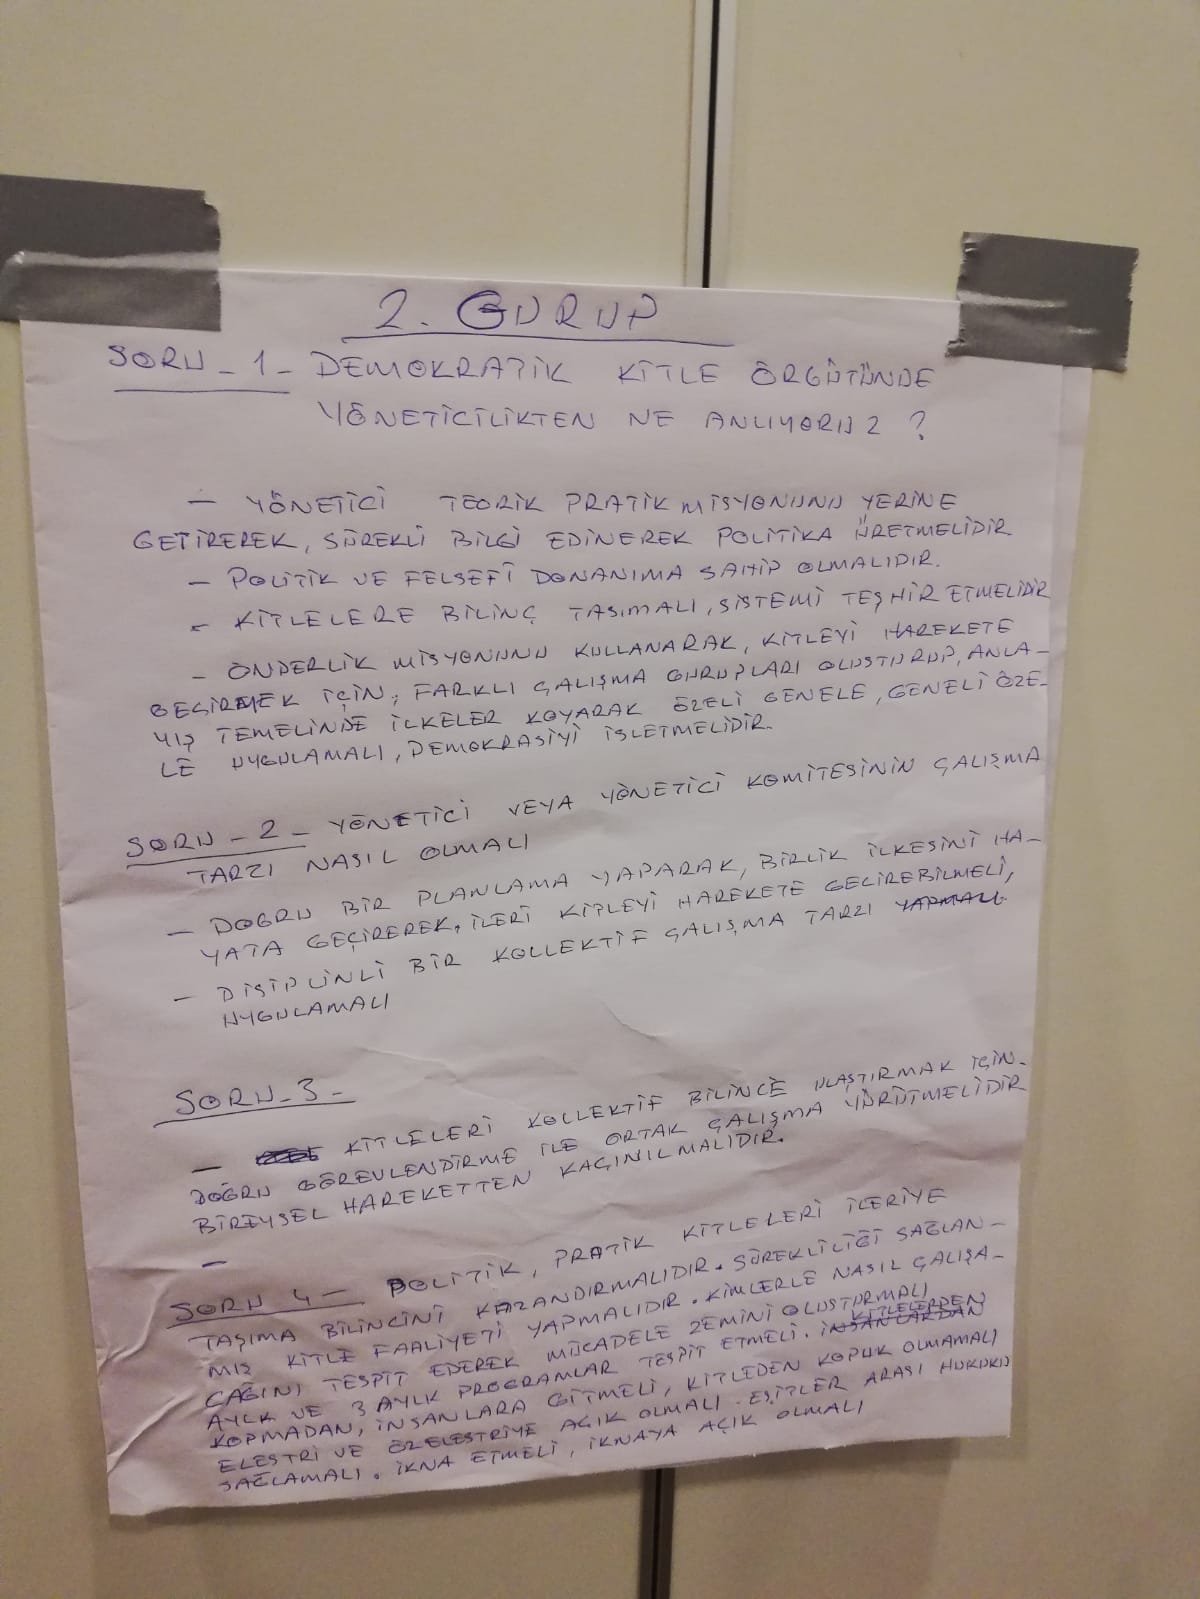 2. GURUP
SORU - 1 - DEMOKRATİK KİTLE ÖRGÜTÜNDE
YÖNETİCİLİKTEN NE ANLIYORUZ ?
- YÖNETİCİ TEORİK PRATİK MİSYONUNU YERİNE
GETİREREK, SÜREKLİ BİLGİ EDİNEREK POLİTİKA ÜRETMELİDİR
- POLİTİK VE FELSEFİ DONANIMA SAHİP OLMALIDIR.
- KİTLELERE BİLİNÇ TAŞIMALI, SİSTEMİ TEŞHİR ETMELİDİR
- ÖNDERLİK MİSYONUNU KULLANARAK, KİTLEYİ HAREKETE
GEÇİRMEK İÇİN, FARKLI ÇALIŞMA GURUPLARI OLUŞTURUP, ANLA-
YIŞ TEMELİNDE İLKELER KOYARAK ÖZELİ GENELE, GENELİ ÖZE-
LE UYGULAMALI, DEMOKRASİYİ İŞLETMELİDİR.
SORU - 2 - YÖNETİCİ VEYA YÖNETİCİ KOMİTESİNİN ÇALIŞMA
TARZI NASIL OLMALI
- DOĞRU BİR PLANLAMA YAPARAK, BİRLİK İLKESİNİ HA-
YATA GEÇİREREK, İLERİ KİTLEYİ HAREKETE GEÇİREBİLMELİ,
- DİSİPLİNLİ BİR KOLLEKTİF ÇALIŞMA TARZI YAPMALI
UYGULAMALI
SORU - 3 -
- KİTLELERİ KOLLEKTİF BİLİNCE ULAŞTIRMAK İÇİN.
DOĞRU GÖREVLENDİRME İLE ORTAK ÇALIŞMA YÜRÜTMELİDİR
BİREYSEL HAREKETTEN KAÇINILMALIDIR.
-
SORU 4 - POLİTİK, PRATİK KİTLELERİ İLERİYE
TAŞIMA BİLİNCİNİ KAZANDIRMALIDIR. SÜREKLİLİĞİ SAĞLAN-
MIŞ KİTLE FAALİYETİ YAPMALIDIR. KİMLERLE NASIL ÇALIŞA-
CAĞINI TESPİT EDEREK MÜCADELE ZEMİNİ OLUŞTURMALI
AYLK VE 3 AYLIK PROGRAMLAR TESPİT ETMELİ. İNSANLARDAN KİTLELERDEN
KOPMADAN, İNSANLARA GİTMELİ, KİTLEDEN KOPUK OLMAMALI
ELESTRİ VE ÖZELESTRİYE AÇIK OLMALI. EŞİTLER ARASI HUKUKU
SAĞLAMALI. İKNA ETMELİ, İKNAYA AÇIK OLMALI